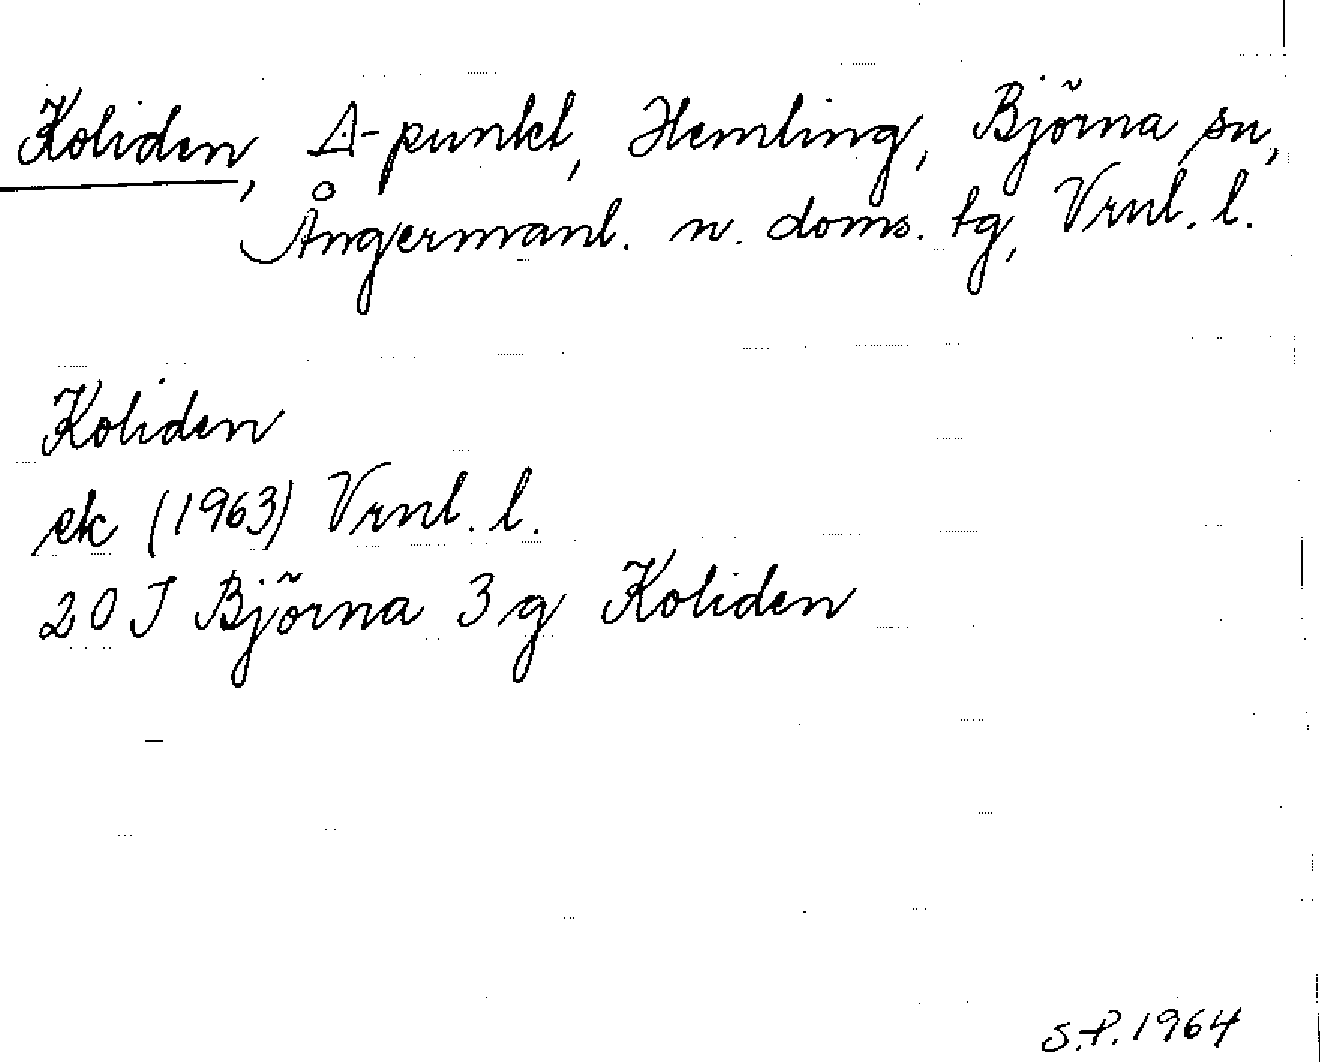 Koliden, Δ-punkt, Hemling, Björna sn,
Ångermanl. n. doms. tg, Vrnl. l.
Koliden
ek (1963) Vrnl. l.
20 J Björna 3 g Koliden
S.P. 1964